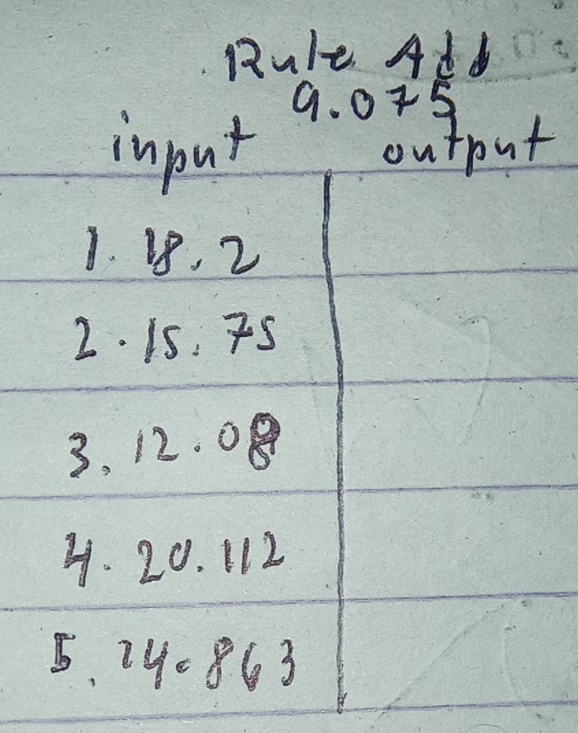 Rule Add
9.075
input output
1. 18.2
2. 15.75
3. 12.08
4. 20.112
5. 24.863